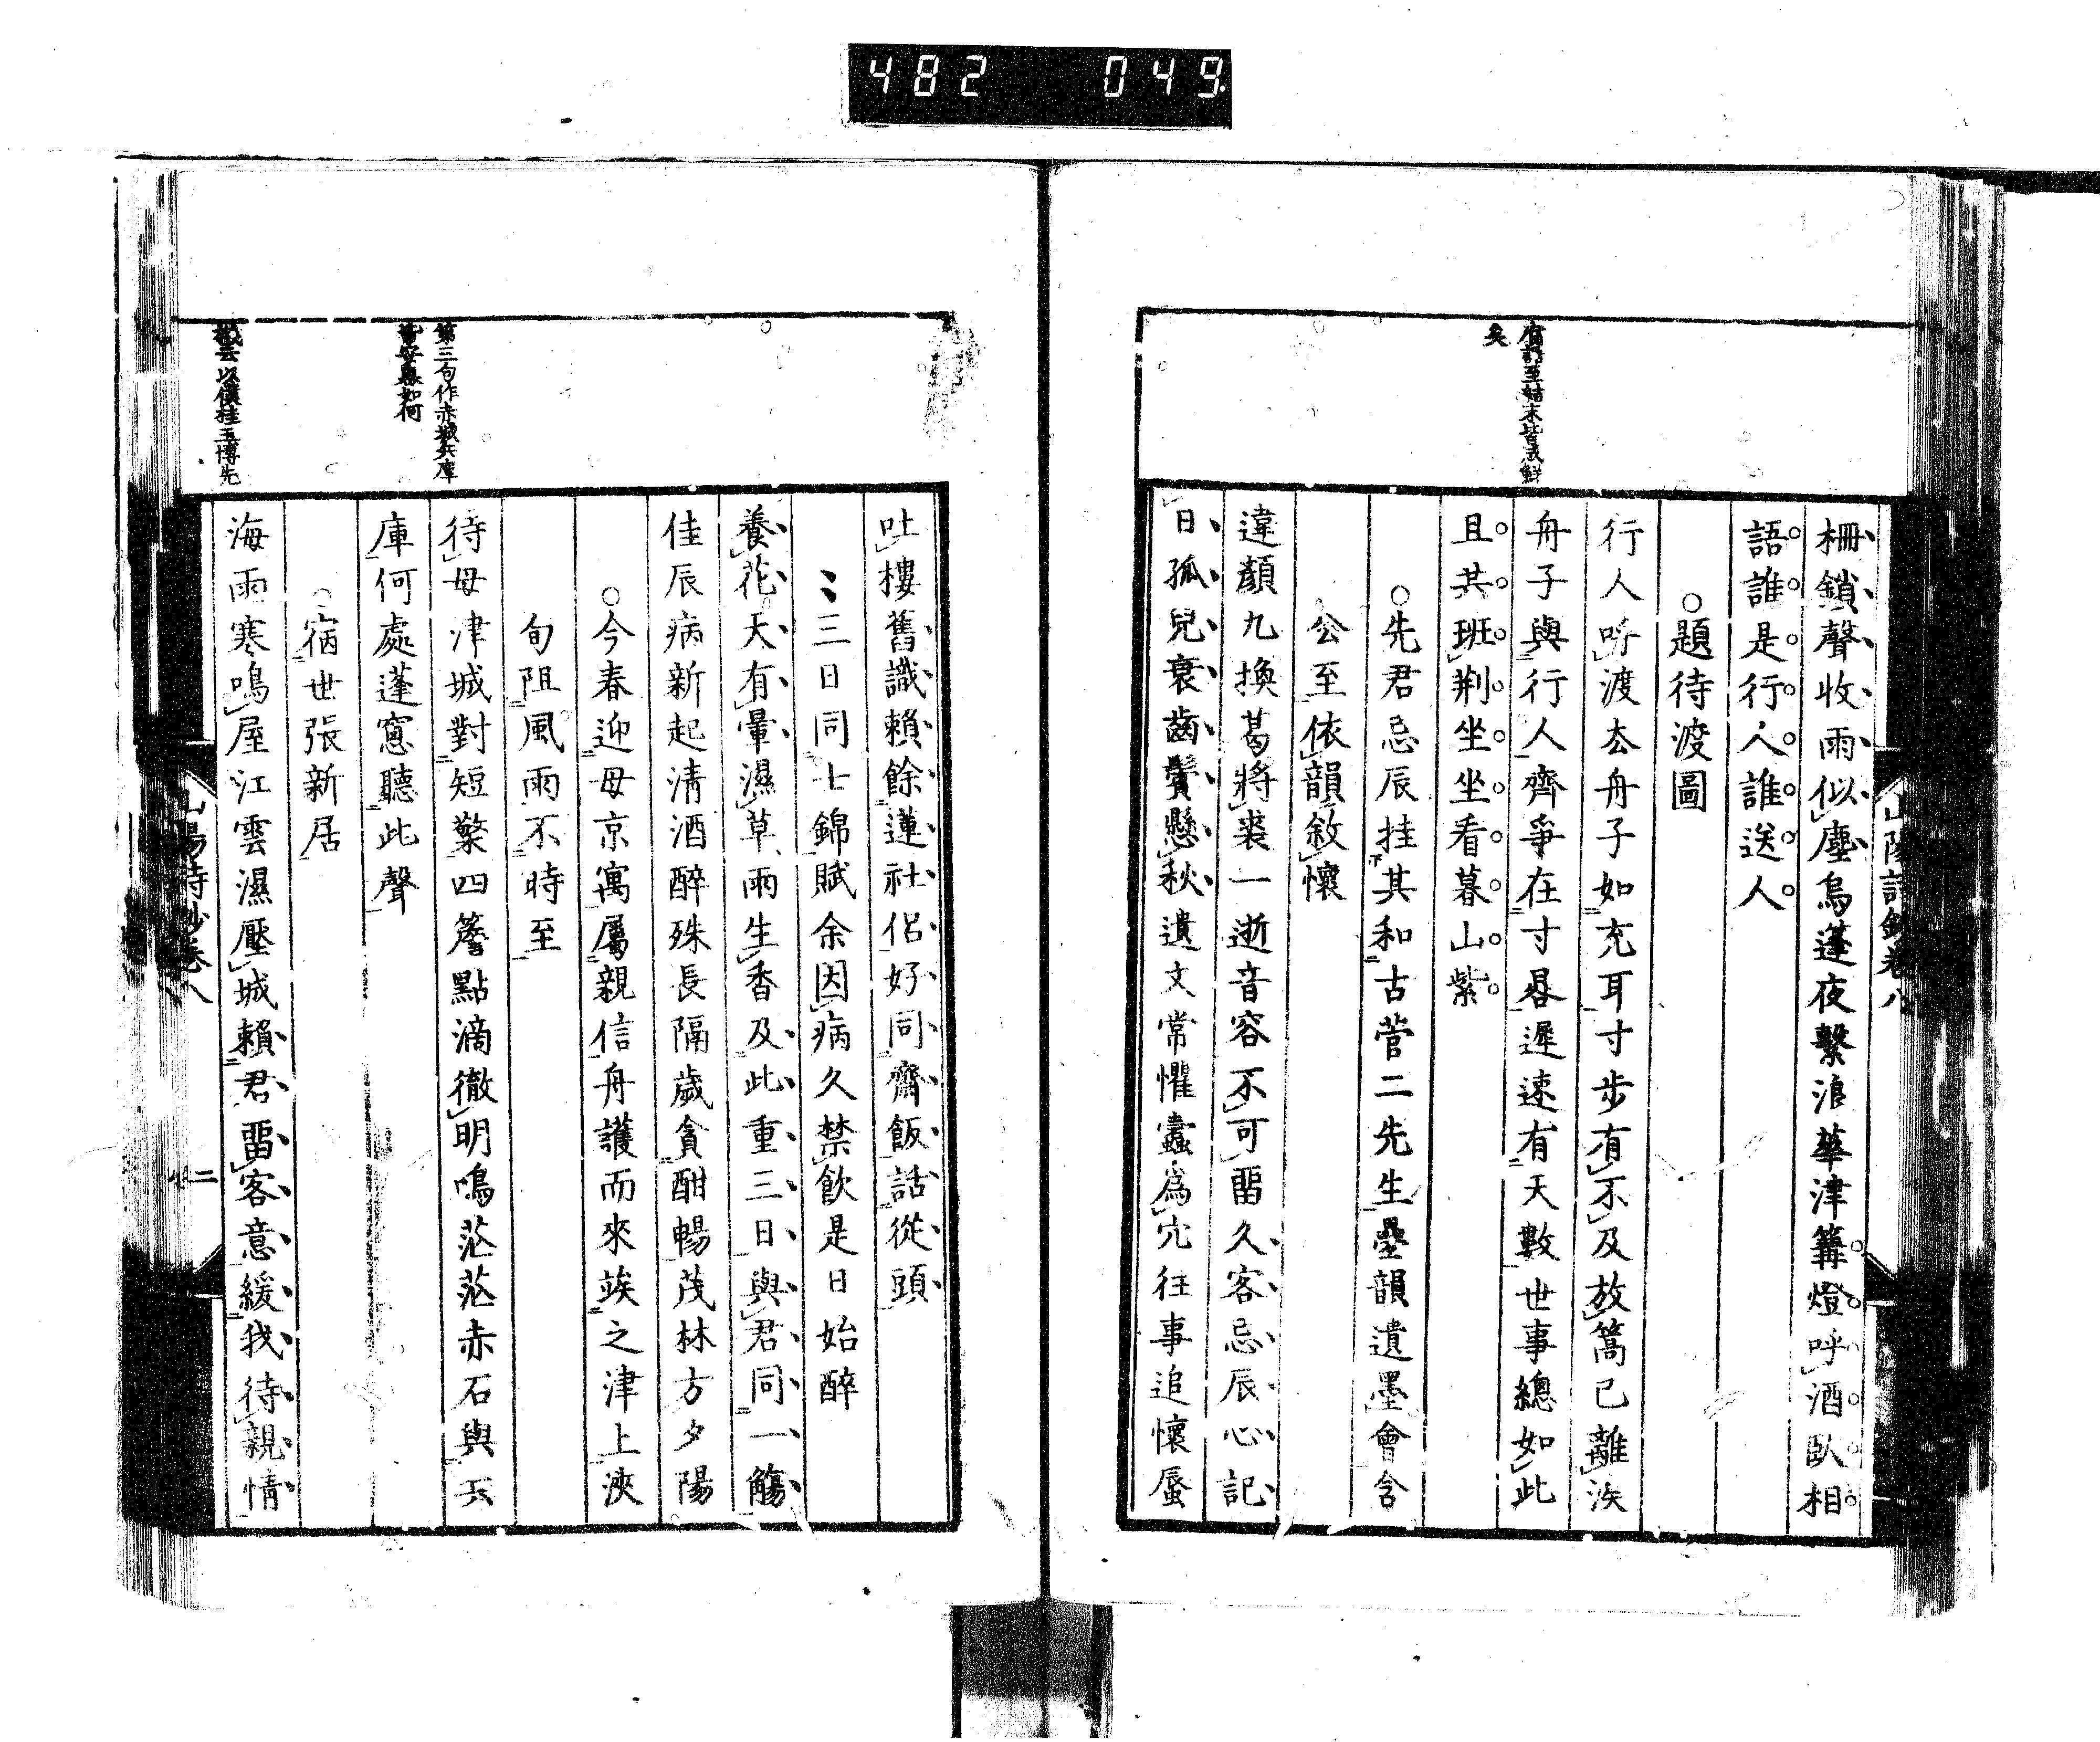 482 049
山陽詩鈔卷八
腐語至姑末皆成鮮
矣
柵鎖聲收雨似塵烏蓬夜繫浪華津篝燈呼酒臥相
語誰是行人誰送人
○題待渡圖
行人呼渡去舟子如充耳寸步有不及放篙已離涘
舟子與行人齊爭在寸晷遲速有天數世事總如此
且共班荆坐坐看暮山紫
○先君忌辰挂其和古菅二先生疊韻遺墨會含
公至依韻敘懷
違顏九換葛將裘一逝音容不可畱久客忌辰心記
日孤兒衰齒鬢懸秋遺文常懼蠹為穴往事追懷蜃
第三句作赤城兵庫
吐樓舊識賴餘蓮社侶好同齋飯話從頭
三日同士錦賦余因病久禁飲是日始醉
養花天有暈濕草雨生香及此重三日與君同一觴
佳辰病新起清酒醉殊長隔歲貪酣暢茂林方夕陽
○今春迎母京寓屬親信舟護而來竢之津上浹
旬阻風雨不時至
待母津城對短檠四簷點滴徹明鳴茫茫赤石與兵
庫何處蓬窻聽此聲
○宿世張新居
海雨寒鳴屋江雲濕壓城賴君畱客意緩我待親情
山陽詩鈔卷八
二